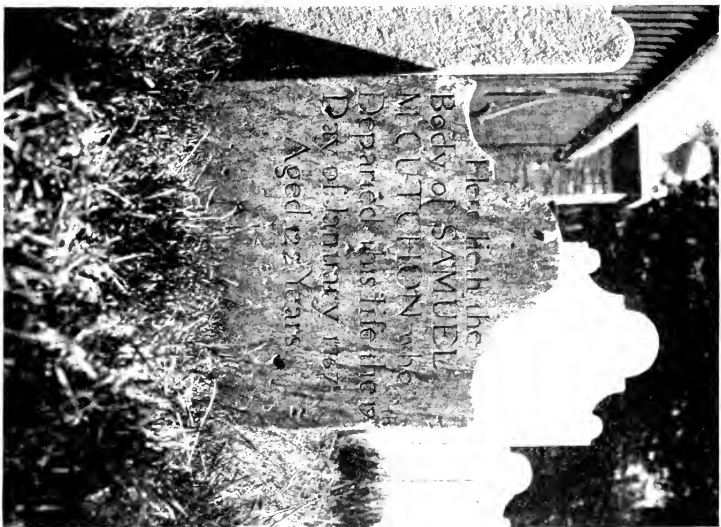 Here lieth the
Body of SAMUEL
McCUTCHION who
Departed this life the
Day of Janury 1767
Aged 122 Years